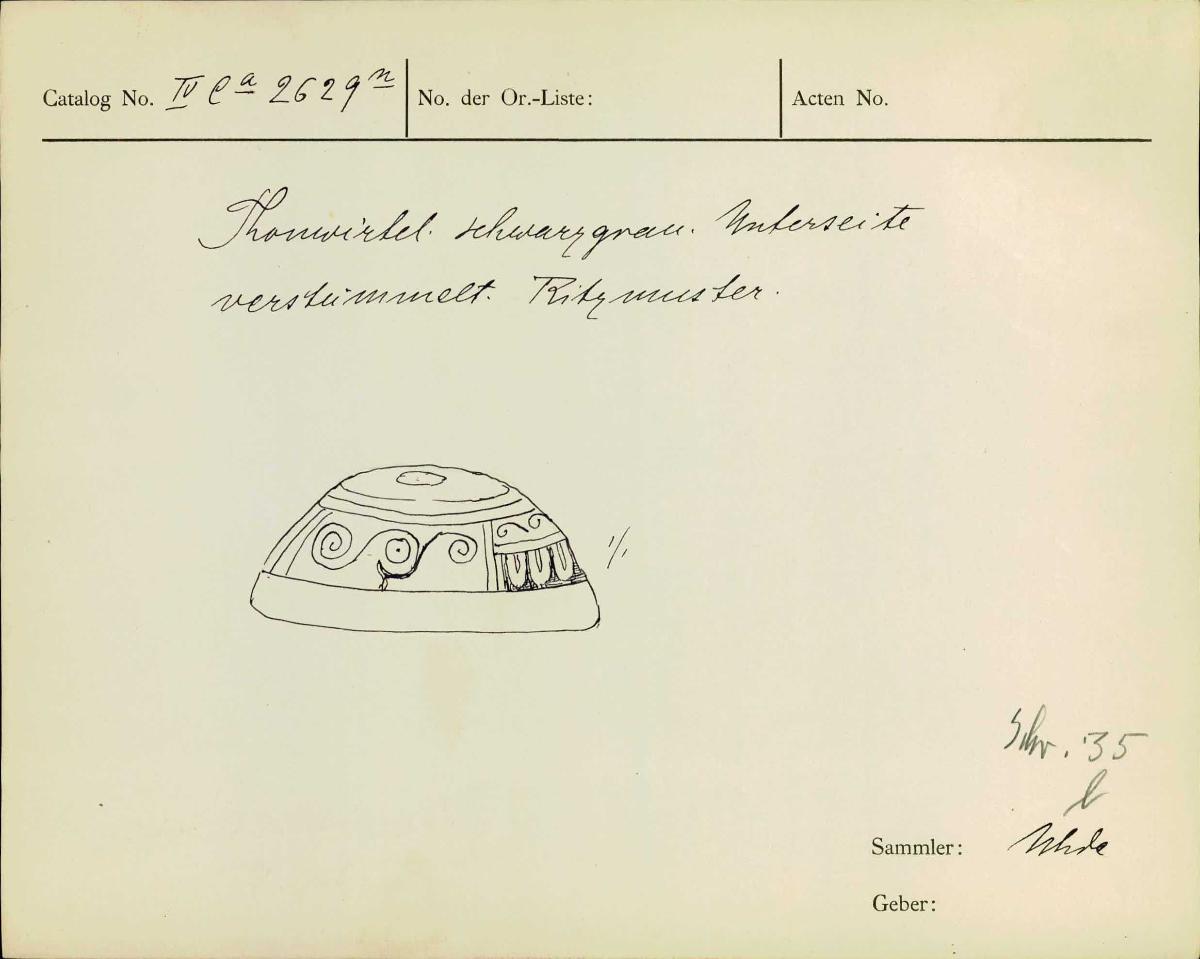 Catalog No. IV Ca 2629 n No. der Or.-Liste: Acten No.
Thonwirtel. schwarzgrau. Unterseite
verstümmelt. Ritzmuster.
1/1
Schr. '35
b
Sammler: Uhde
Geber: